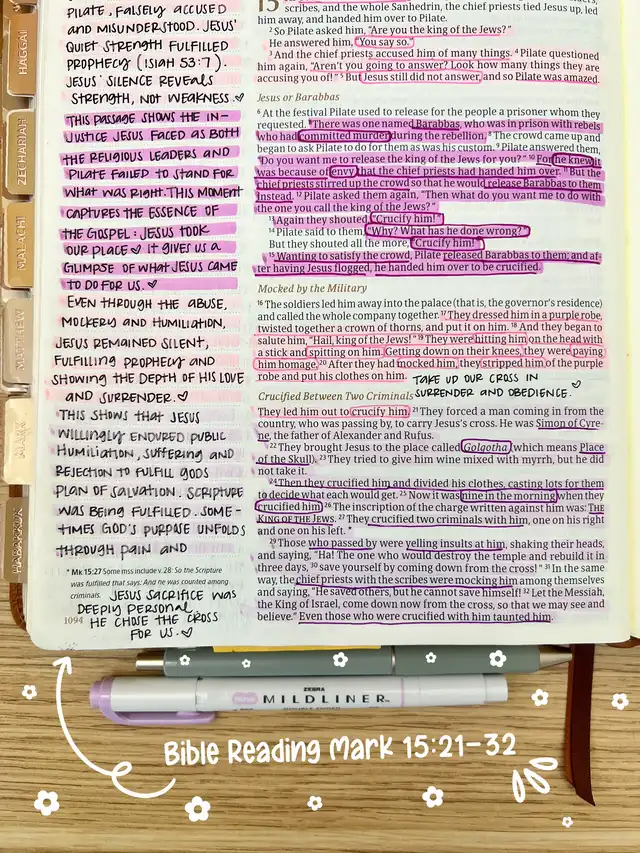 HAGGAI
ZECHARIAH
MALACHI
MATTHEW
MARK
HABAKKUK
PILATE, FALSELY ACCUSED
AND MISUNDERSTOOD. JESUS'
QUIET STRENGTH FULFILLED
PROPHECY (ISIAH 53:7).
JESUS' SILENCE REVEALS
STRENGTH, NOT WEAKNESS.
THIS PASSAGE SHOWS THE IN-
JUSTICE JESUS FACED AS BOTH
THE RELIGIOUS LEADERS AND
PILATE FAILED TO STAND FOR
WHAT WAS RIGHT. THIS MOMENT
CAPTURES THE ESSENCE OF
THE GOSPEL: JESUS TOOK
OUR PLACE IT GIVES US A
GLIMPSE OF WHAT JESUS CAME
TO DO FOR US.
EVEN THROUGH THE ABUSE,
MOCKERY AND HUMILIATION,
JESUS REMAINED SILENT,
FULFILLING PROPHECY AND
SHOWING THE DEPTH OF HIS LOVE
AND SURRENDER.
THIS SHOWS THAT JESUS
WILLINGLY ENDURED PUBLIC
HUMILIATION, SUFFERING AND
REJECTION TO FULFILL GODS
PLAN OF SALVATION. SCRIPTURE
WAS BEING FULFILLED. SOME-
TIMES GOD'S PURPASE UNFOLDS
THROUGH PAIN AND
* Mk 15:27 Some mss include v. 28: So the Scripture
was fulfilled that says: And he was counted among
criminals.
JESUS SACRIFICE WAS
DEEPLY PERSONAL
HE CHOSE THE CROSS
FOR US.
1094
15
scribes, and the whole Sanhedrin, the chief priests tied Jesus up, led
him away, and handed him over to Pilate.
2 So Pilate asked him, "Are you the king of the Jews?"
He answered him, "You say so."
3 And the chief priests accused him of many things. 4 Pilate questioned
him again, "Aren't you going to answer? Look how many things they are
accusing you of!" 5 But Jesus still did not answer, and so Pilate was amazed.
Jesus or Barabbas
6 At the festival Pilate used to release for the people a prisoner whom they
requested. 7 There was one named Barabbas, who was in prison with rebels
who had committed murder during the rebellion. 8 The crowd came up and
began to ask Pilate to do for them as was his custom. 9 Pilate answered them,
"Do you want me to release the king of the Jews for you?" 10 For he knew it
was because of envy that the chief priests had handed him over. 11 But the
chief priests stirred up the crowd so that he would release Barabbas to them
instead. 12 Pilate asked them again, "Then what do you want me to do with
the one you call the king of the Jews?"
13 Again they shouted, "Crucify him!"
14 Pilate said to them, "Why? What has he done wrong?"
But they shouted all the more, "Crucify him!"
15 Wanting to satisfy the crowd, Pilate released Barabbas to them; and af-
ter having Jesus flogged, he handed him over to be crucified.
Mocked by the Military
16 The soldiers led him away into the palace (that is, the governor's residence)
and called the whole company together. 17 They dressed him in a purple robe,
twisted together a crown of thorns, and put it on him. 18 And they began to
salute him, "Hail, king of the Jews!" 19 They were hitting him on the head with
a stick and spitting on him. Getting down on their knees, they were paying
him homage. 20 After they had mocked him, they stripped him of the purple
robe and put his clothes on him.
TAKE UP OUR CROSS IN
SURRENDER AND OBEDIENCE.
Crucified Between Two Criminals
They led him out to crucify him. 21 They forced a man coming in from the
country, who was passing by, to carry Jesus's cross. He was Simon of Cyre-
ne, the father of Alexander and Rufus.
22 They brought Jesus to the place called Golgotha (which means Place
of the Skull). 23 They tried to give him wine mixed with myrrh, but he did
not take it.
24 Then they crucified him and divided his clothes, casting lots for them
to decide what each would get. 25 Now it was nine in the morning when they
crucified him. 26 The inscription of the charge written against him was: THE
KING OF THE JEWS. 27 They crucified two criminals with him, one on his right
and one on his left. *
29 Those who passed by were yelling insults at him, shaking their heads,
and saying, "Ha! The one who would destroy the temple and rebuild it in
three days, 30 save yourself by coming down from the cross!" 31 In the same
way, the chief priests with the scribes were mocking him among themselves
and saying, "He saved others, but he cannot save himself! 32 Let the Messiah,
the King of Israel, come down now from the cross, so that we may see and
believe." Even those who were crucified with him taunted him.
ZEBRA
MILDLINER
Bible Reading Mark 15:21-32